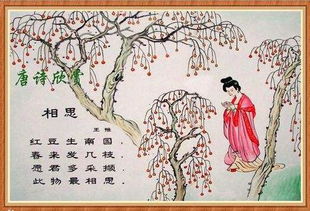 唐诗欣赏
相思
王维
红豆生南国，
春来发几枝
愿君多采撷
此物最相思．